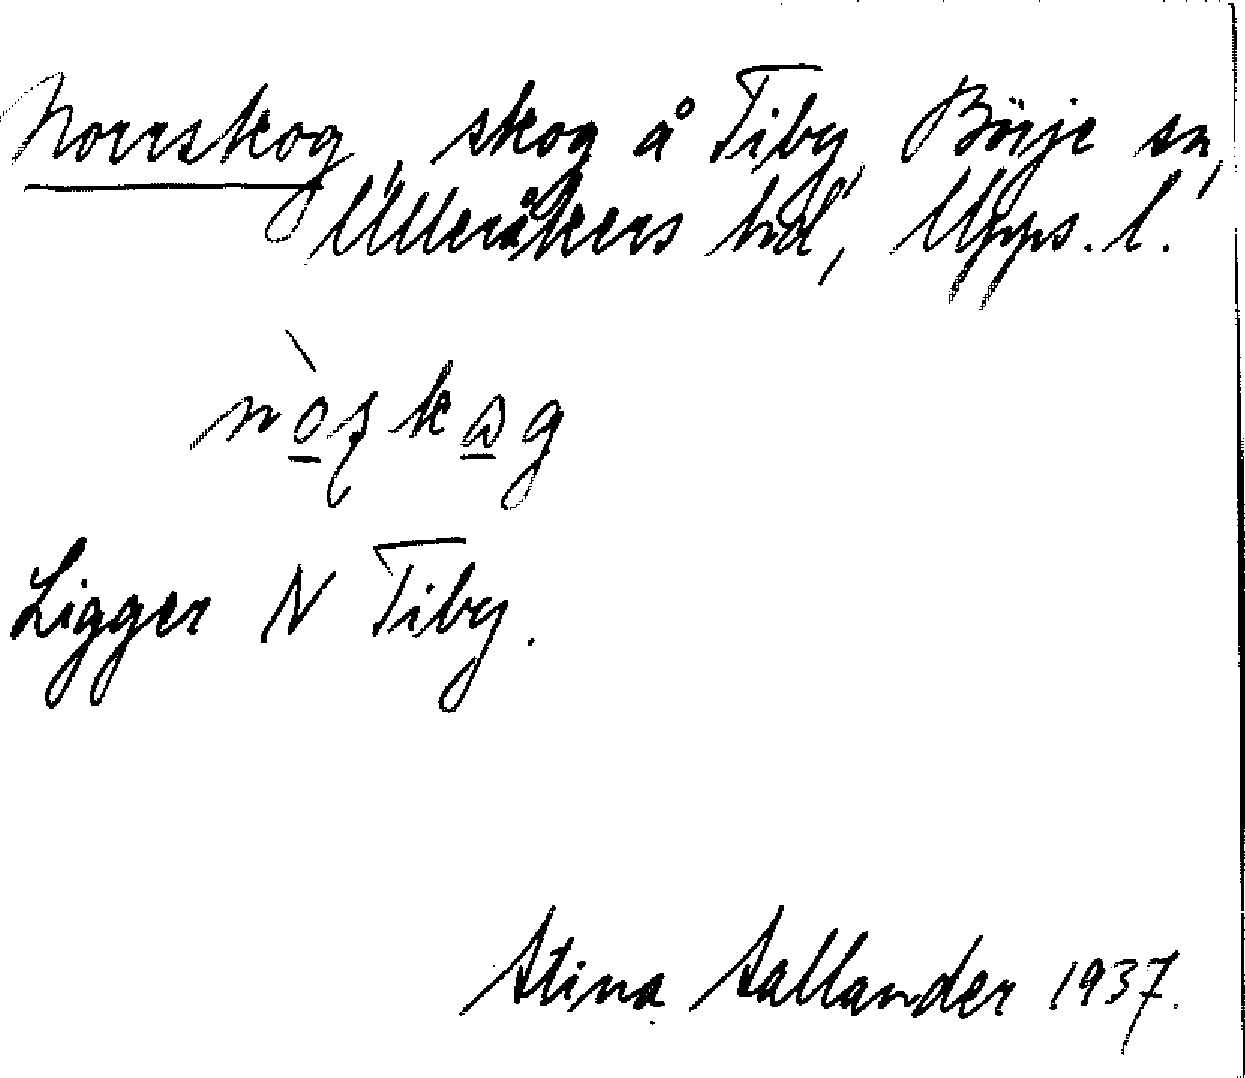 Norrskog, skog å Tiby, Börje sn,
Ulleråkers hd, Upps. l.
Ligger N Tiby.
Stina Sallander 1937.